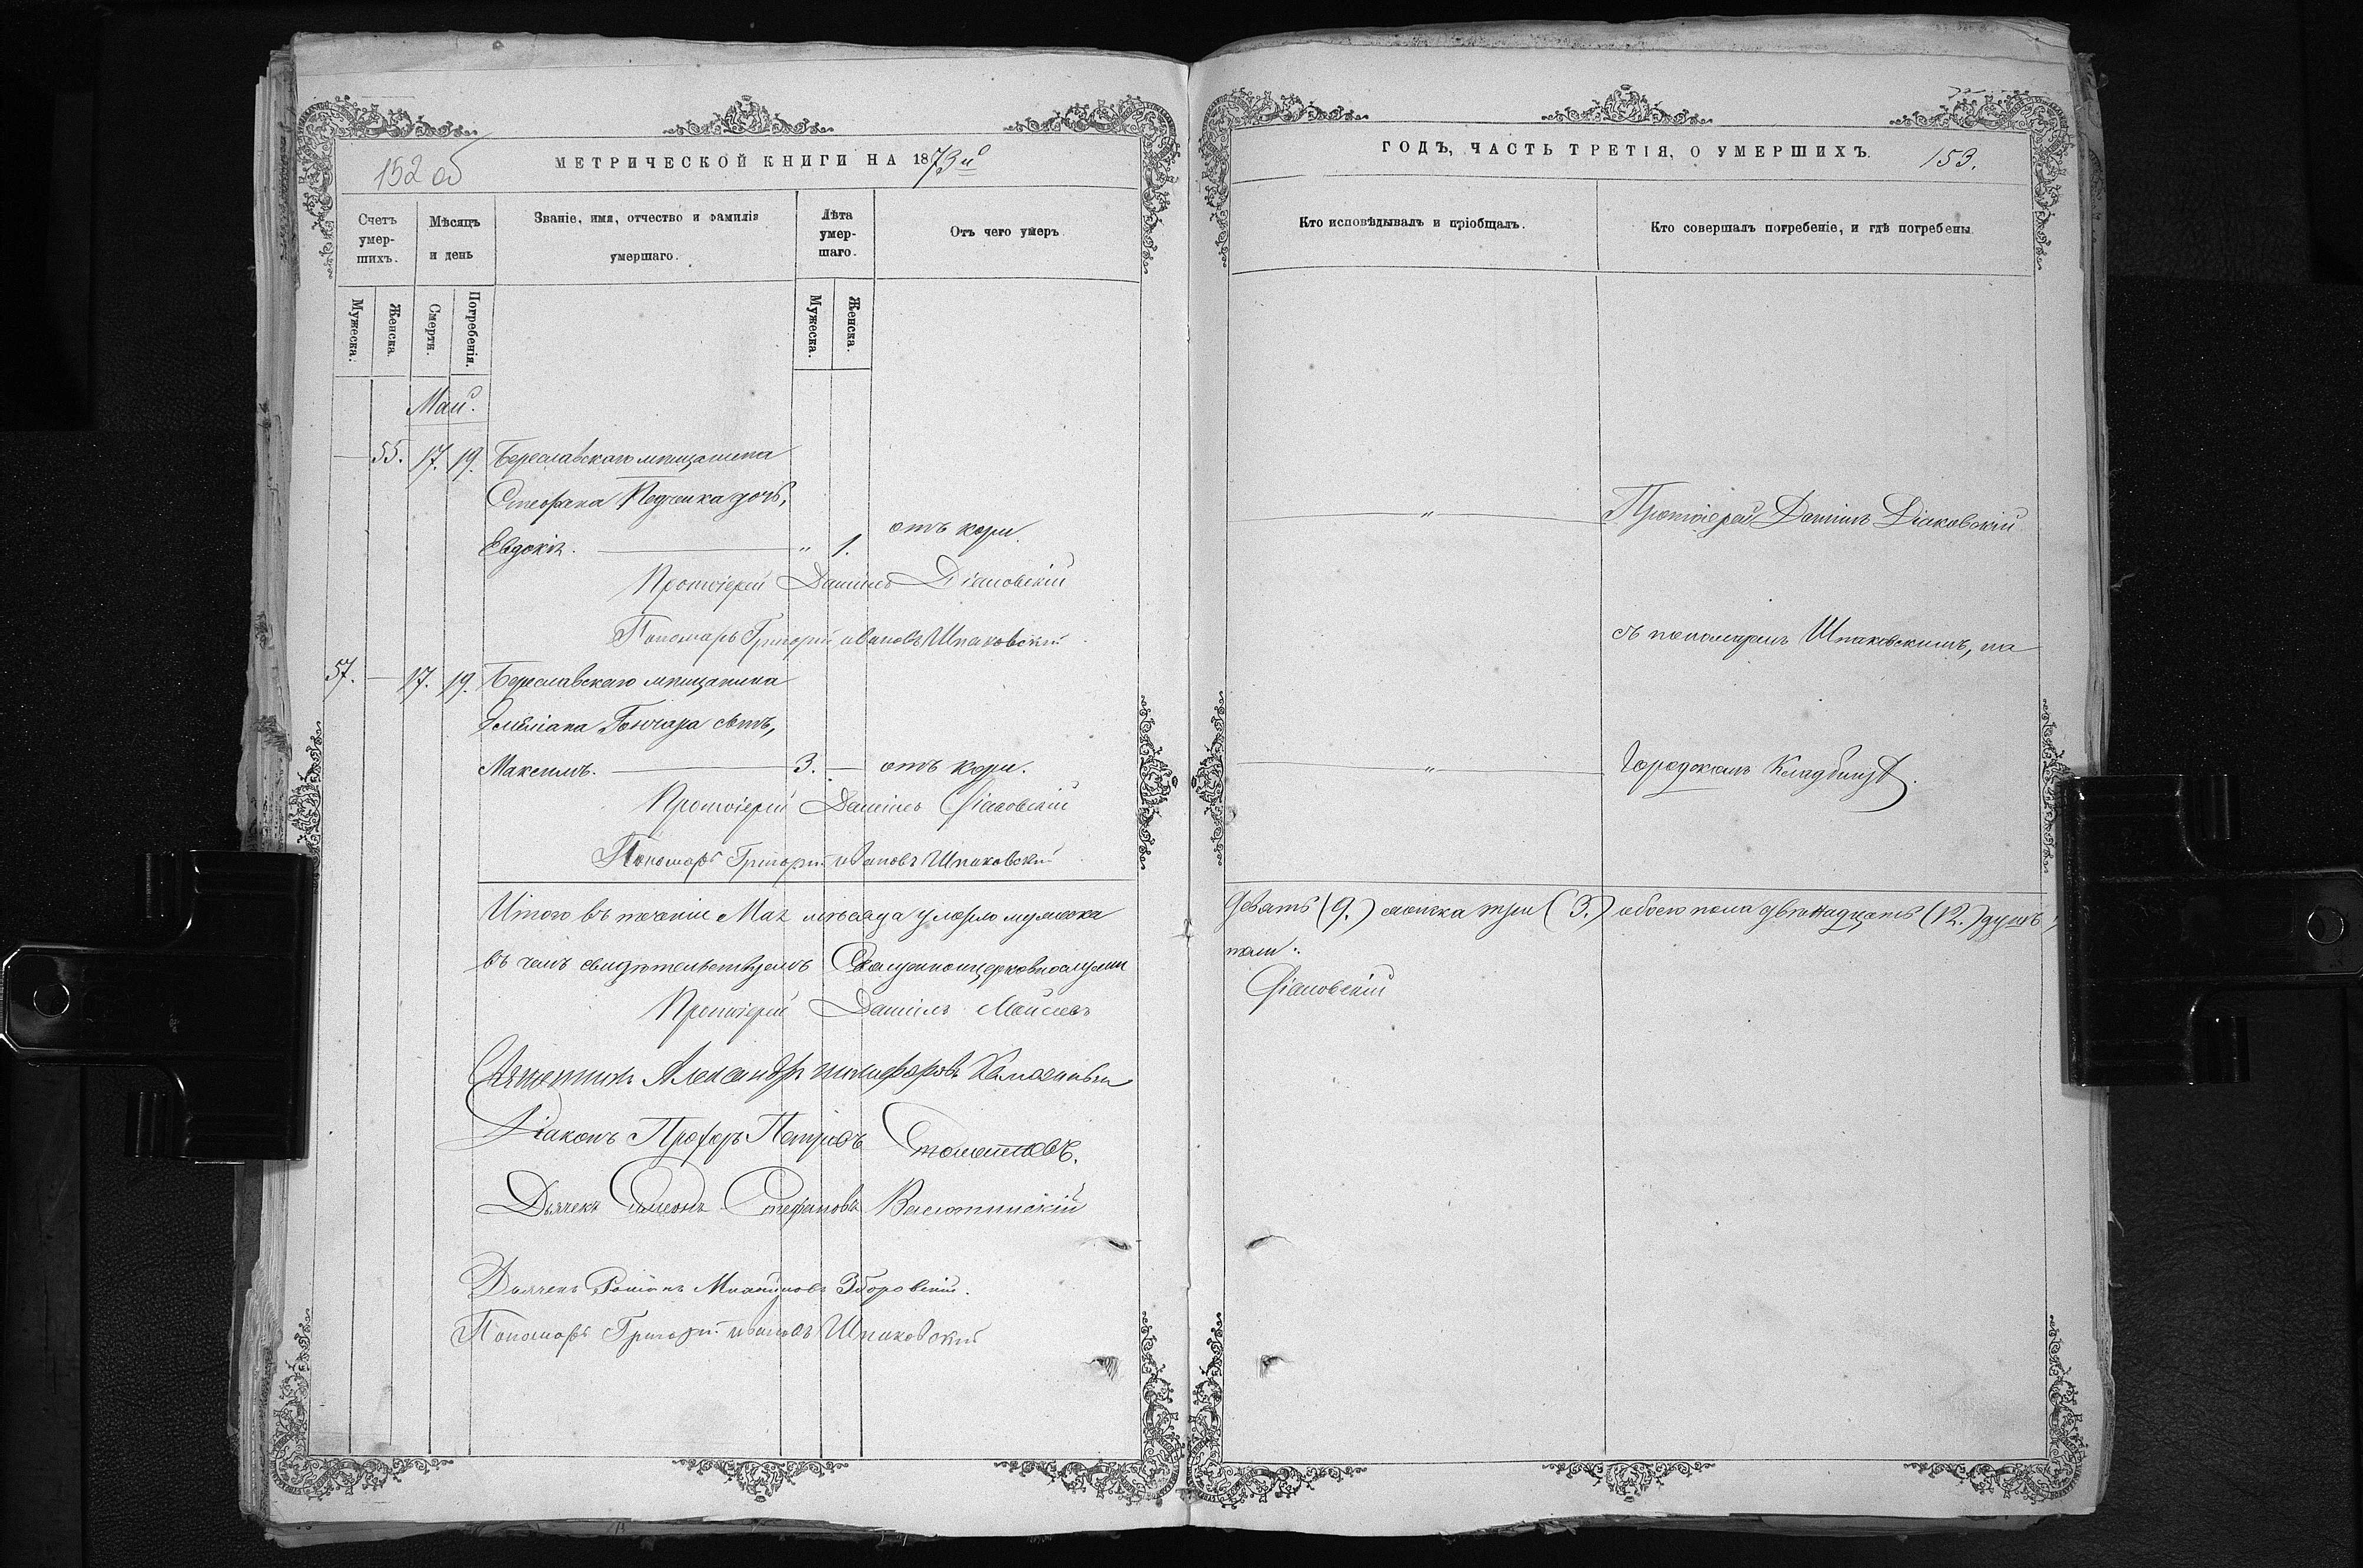 152 об
МЕТРИЧЕСКОЙ КНИГИ НА 1873й
Счетъ умер-шихъ.
Мѣсяцъ и день
Званіе, имя, отчество и фамилія умершаго.
Лѣта умер-шаго.
Отъ чего умеръ
Мужеска.
Женска
Смерти.
Погребенія.
Мужеска.
Женска.
Май.
55. 17. 19. Береславскаго мѣщанина
Стефана дочь,
Евдокія. " 1. отъ кори.
Протоіерей Даніилъ Діаковскій
Пономарь Григорій Ивановъ Шпаковскій
57. 17. 19. Береславскаго мѣщанина
Емеліана Гончара сынъ,
Максимъ. 3. отъ кори.
Протоіерей Даніилъ Діаковскій
Пономарь Григорій Ивановъ Шпаковскій
Итого въ теченіи Мая мѣсяца умерло мужеска
въ чемъ свидѣтельствуемъ
Протоіерей Даніилъ Моисеевъ
Священникъ Александръ
Діаконъ Петровъ
Дьячекъ Симеонъ Стефановъ
Дьячекъ Зборовскій.
Пономарь Григорій Ивановъ Шпаковскій
ГОДЪ, ЧАСТЬ ТРЕТІЯ, О УМЕРШИХЪ.
153.
Кто исповѣдывалъ и пріобщалъ.
Кто совершалъ погребеніе, и гдѣ погребены
" Протоіерей Даніилъ Діаковскій
съ пономаремъ Шпаковскимъ, на
" Городскомъ Кладбищѣ.
девять (9.) женска три (3.) обоего пола двѣнадцать (12.) душъ
Діаковскій